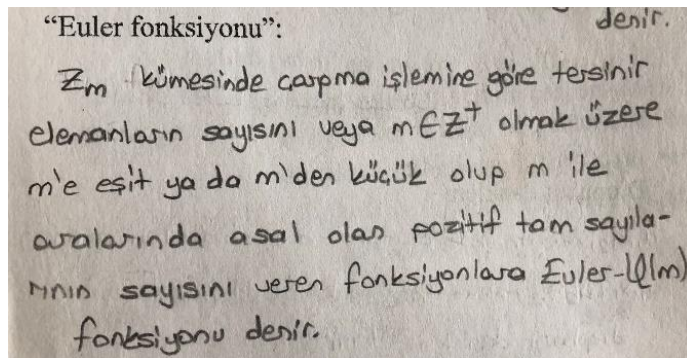 denir.
“Euler fonksiyonu”:
Zm kümesinde çarpma işlemine göre tersinir
elemanların sayısını veya m∈Z⁺ olmak üzere
m'e eşit ya da m'den küçük olup m ile
aralarında asal olan pozitif tam sayıla-
rının sayısını veren fonksiyonlara Euler-φ(m)
fonksiyonu denir.